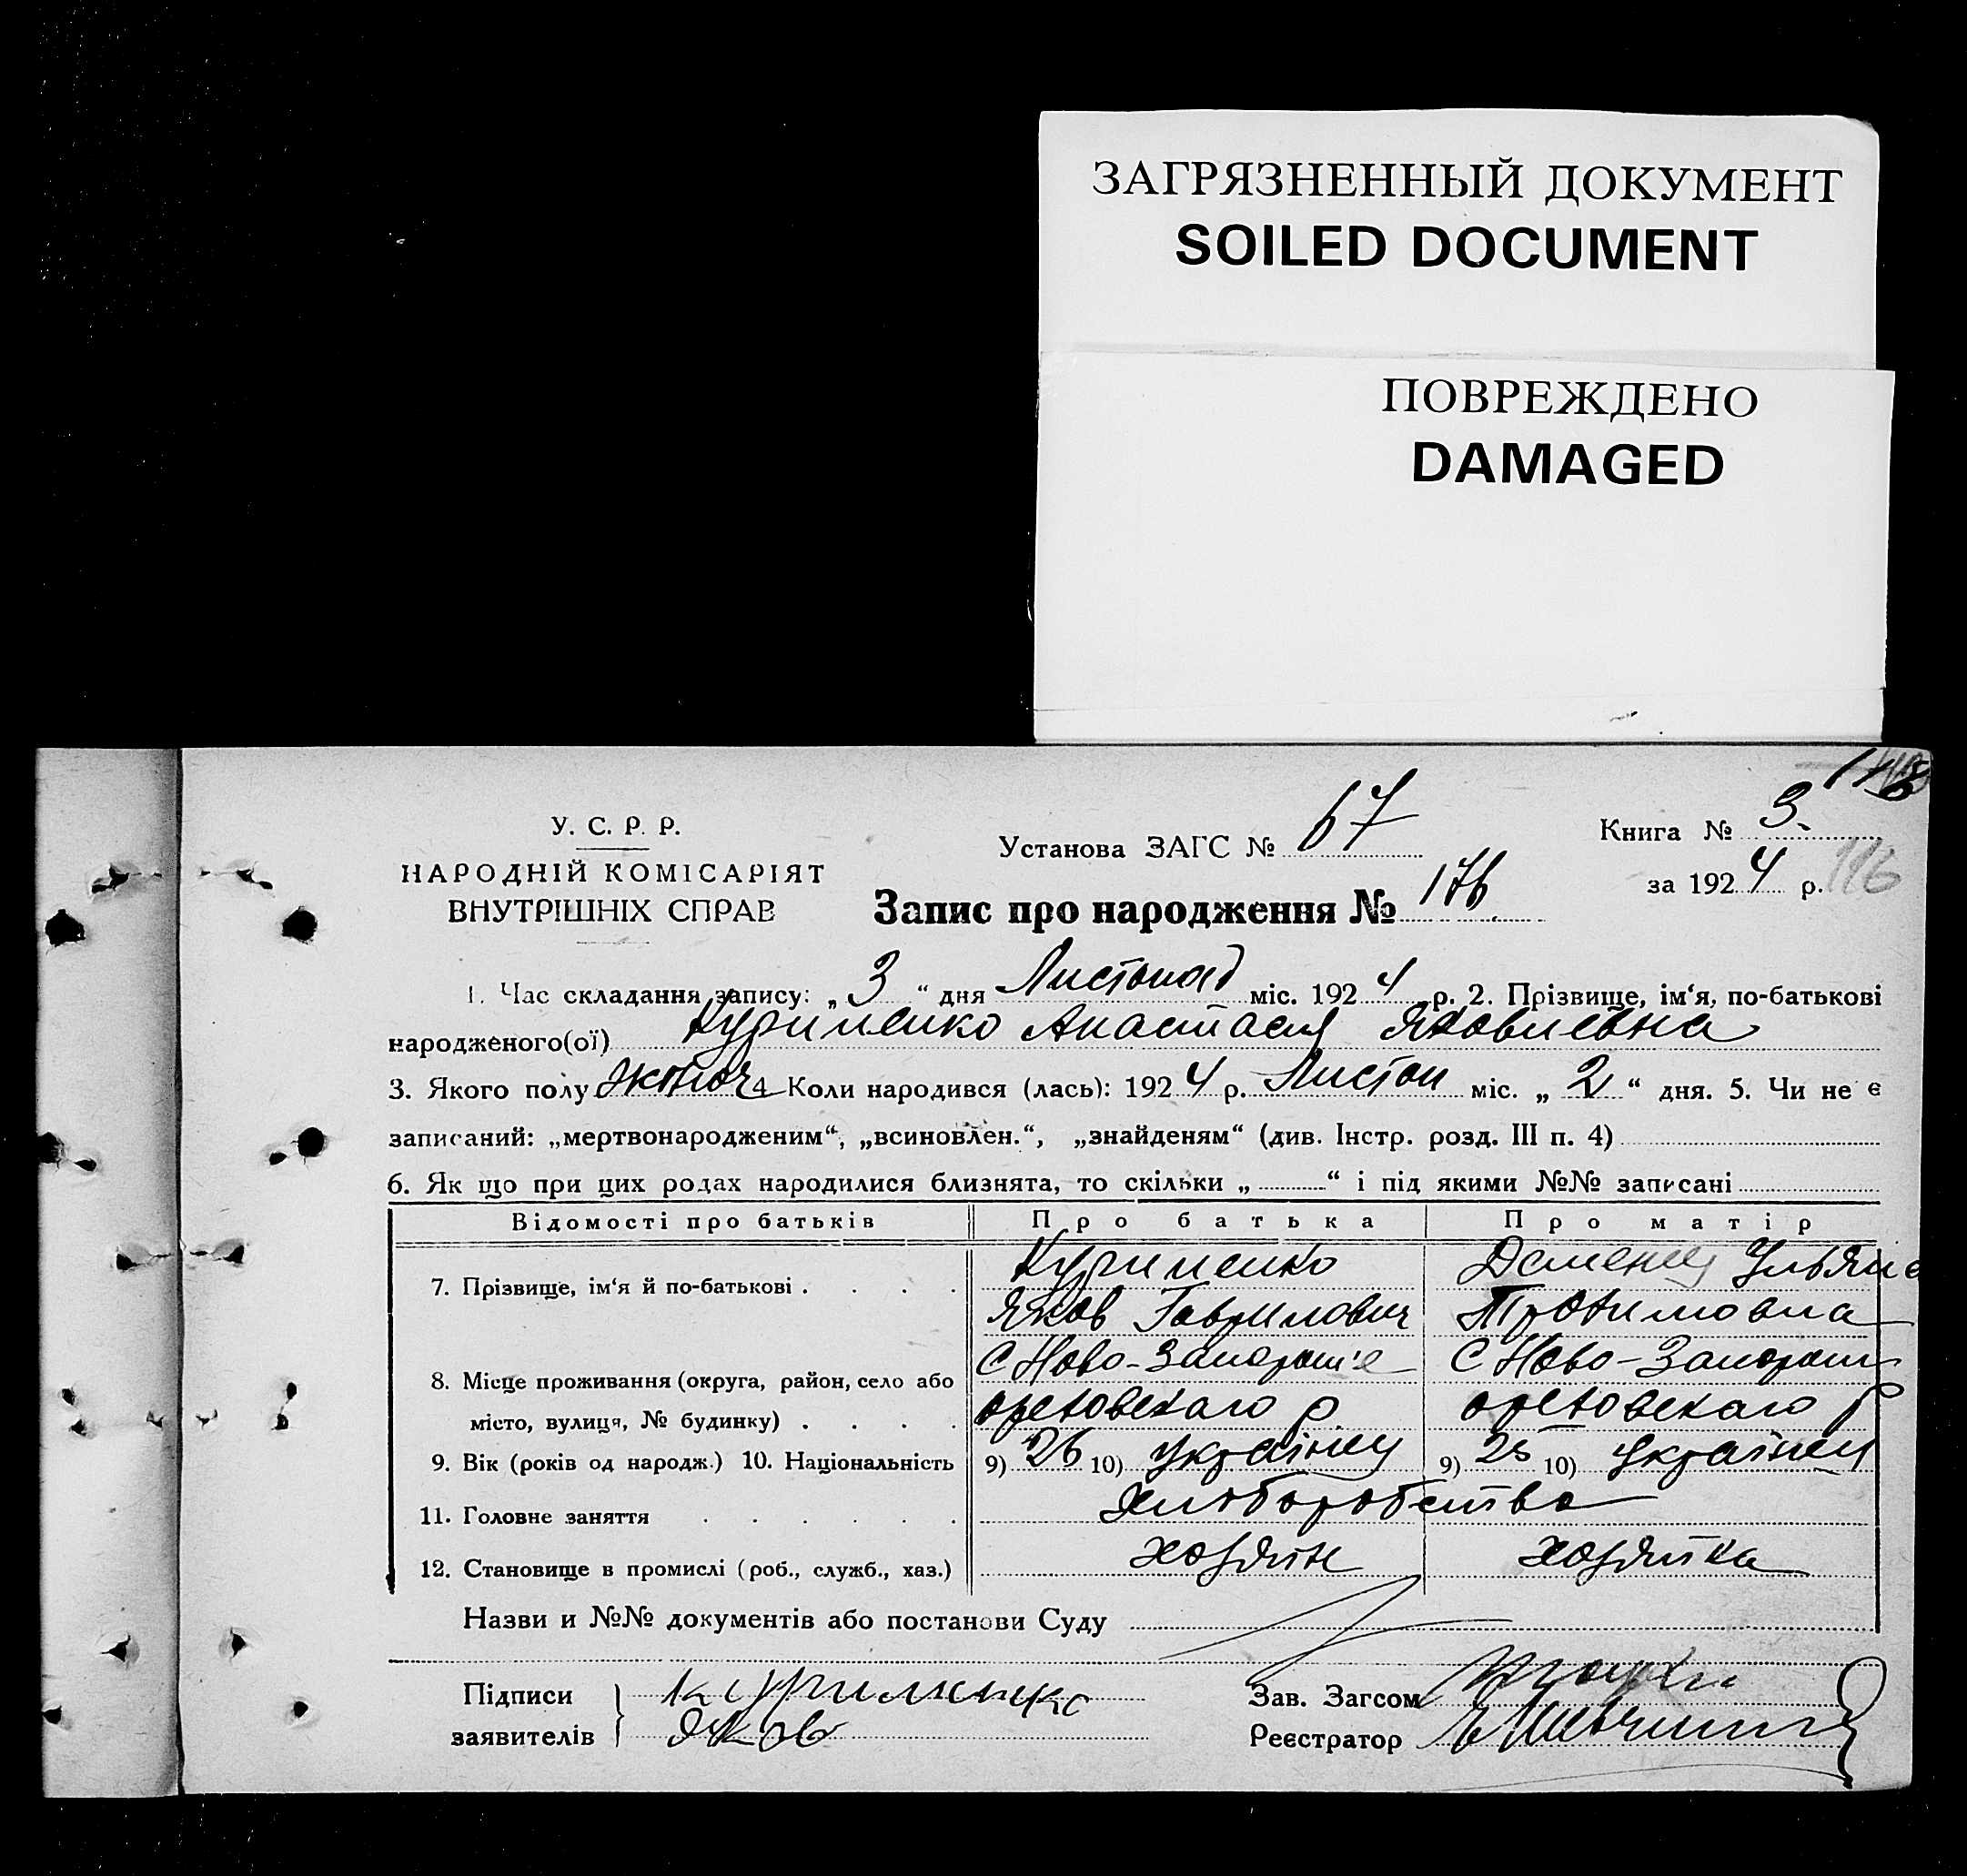 ЗАГРЯЗНЕННЫЙ ДОКУМЕНТ
SOILED DOCUMENT
ПОВРЕЖДЕНО
DAMAGED
У. С. Р. Р.
НАРОДНІЙ КОМІСАРІЯТ
ВНУТРІШНІХ СПРАВ
Установа ЗАГС № 67
Книга № 3.
за 1924 р. 116
Запис про народження № 176
1. Час складання запису: „3“ дня Листопад міс. 1924 р. 2. Прізвище, ім‘я, по-батькові
народженого(ої) Куриленко Анастасия Яковлевна
3. Якого полу жіноч 4 Коли народився (лась): 1924 р. Листоп міс. „2“ дня. 5. Чи не є
записаний: „мертвонародженим“, „всиновлен.“, „знайденям“ (див. Інстр. розд. III п. 4)
6. Як що при цих родах народилися близнята, то скільки „ “ і під якими №№ записані
Відомості про батьків Про батька Про матір
7. Прізвище, ім‘я й по-батькові . . . . Куриленко Ульяна
Яков Гаврилович
8. Місце проживання (округа, район, село або С Ново-Запорож'е С Ново-Запорож
місто, вулиця, № будинку) . . . . ореховскаго р. ореховскаго р
9. Вік (років од народж.) 10. Національність 9) 26 10) Українец 9) 25 10) Українец
11. Головне заняття . . . . . . Хлоборобство
12. Становище в промислі (роб., служб., хаз.) хозяин хозяйка
Назви и №№ документів або постанови Суду
Підписи Куриленко Зав. Загсом
заявителів Яков Реєстратор